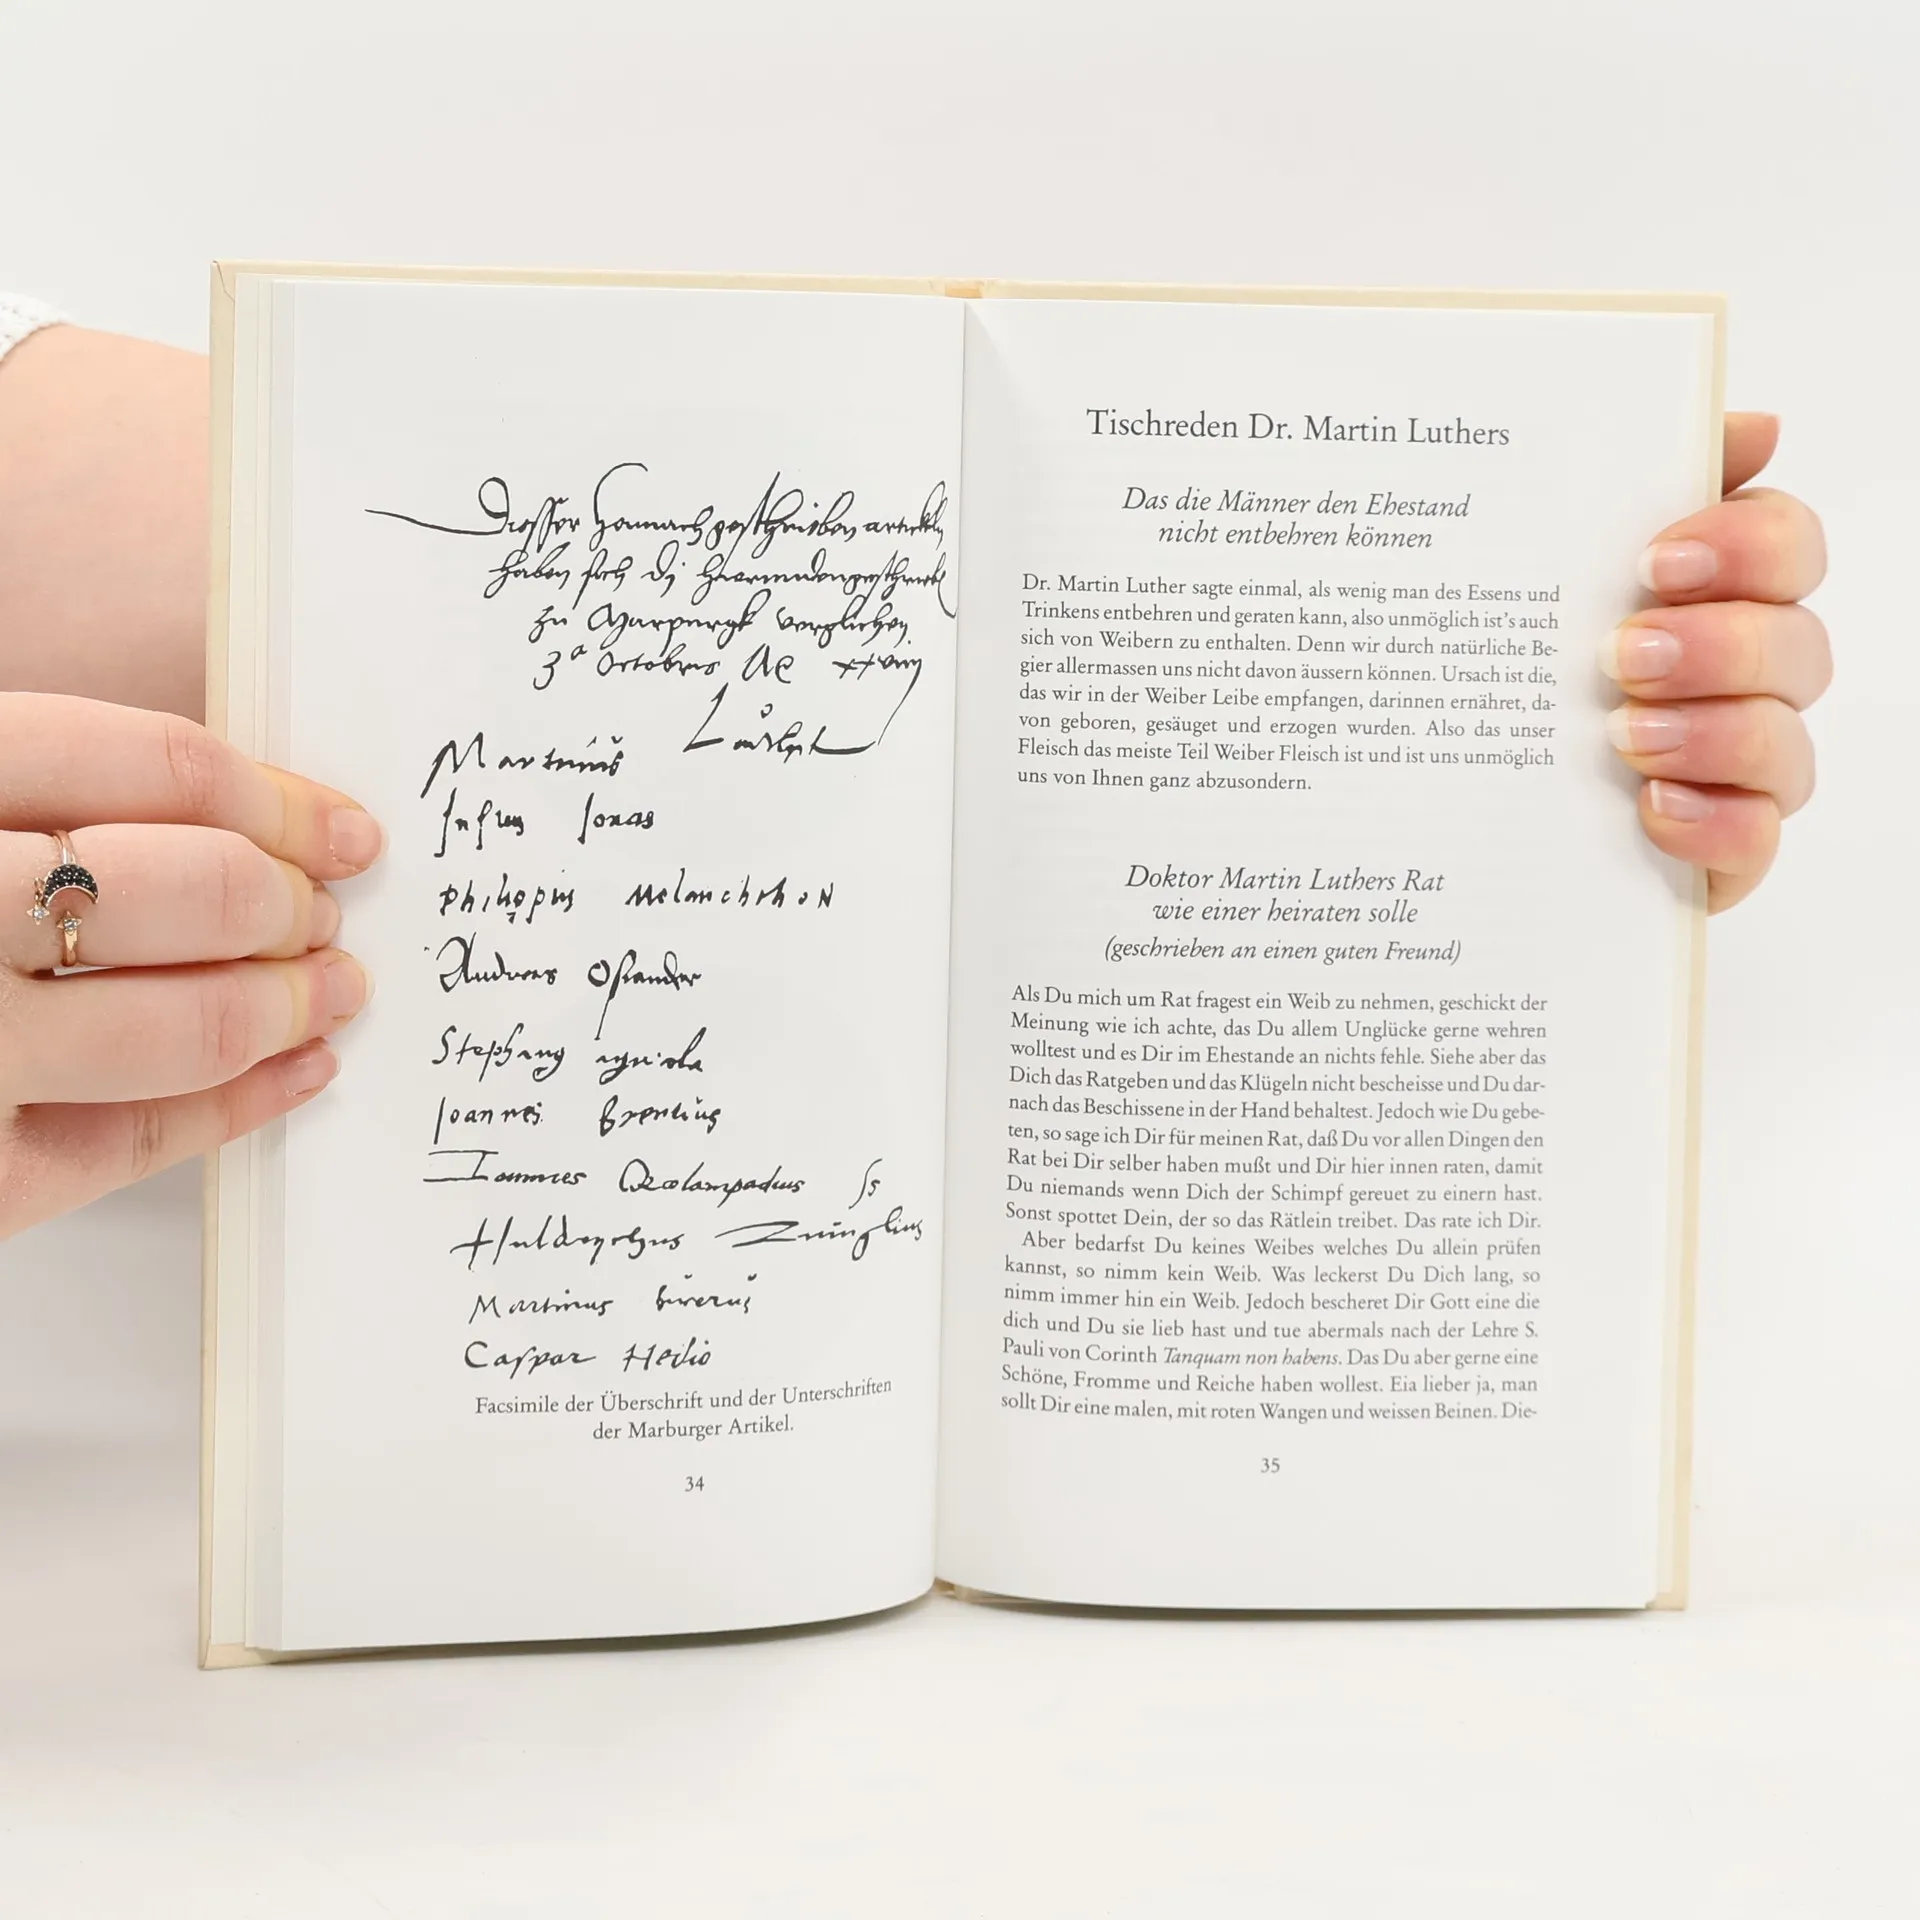 haben sich di
zu Marpurgk verglichen
3ª Octobris
Martinus Luther
Jonas
Philippus Melanchthon
Andreas Osiander
Stephanus agricola
Joannes Brentius
Ioannes Oecolampadius ss
Huldrychus Zuinglius
Martinus Bucerus
Caspar Hedio
Facsimile der Überschrift und der Unterschriften
der Marburger Artikel.
34
Tischreden Dr. Martin Luthers
Das die Männer den Ehestand
nicht entbehren können
Dr. Martin Luther sagte einmal, als wenig man des Essens und
Trinkens entbehren und geraten kann, also unmöglich ist’s auch
sich von Weibern zu enthalten. Denn wir durch natürliche Be-
gier allermassen uns nicht davon äussern können. Ursach ist die,
das wir in der Weiber Leibe empfangen, darinnen ernähret, da-
von geboren, gesäuget und erzogen wurden. Also das unser
Fleisch das meiste Teil Weiber Fleisch ist und ist uns unmöglich
uns von Ihnen ganz abzusondern.
Doktor Martin Luthers Rat
wie einer heiraten solle
(geschrieben an einen guten Freund)
Als Du mich um Rat fragest ein Weib zu nehmen, geschickt der
Meinung wie ich achte, das Du allem Unglücke gerne wehren
wolltest und es Dir im Ehestande an nichts fehle. Siehe aber das
Dich das Ratgeben und das Klügeln nicht bescheisse und Du dar-
nach das Beschissene in der Hand behaltest. Jedoch wie Du gebe-
ten, so sage ich Dir für meinen Rat, daß Du vor allen Dingen den
Rat bei Dir selber haben mußt und Dir hier innen raten, damit
Du niemands wenn Dich der Schimpf gereuet zu einern hast.
Sonst spottet Dein, der so das Rätlein treibet. Das rate ich Dir.
Aber bedarfst Du keines Weibes welches Du allein prüfen
kannst, so nimm kein Weib. Was leckerst Du Dich lang, so
nimm immer hin ein Weib. Jedoch bescheret Dir Gott eine die
dich und Du sie lieb hast und tue abermals nach der Lehre S.
Pauli von Corinth Tanquam non habens. Das Du aber gerne eine
Schöne, Fromme und Reiche haben wollest. Eia lieber ja, man
sollt Dir eine malen, mit roten Wangen und weissen Beinen. Die-
35